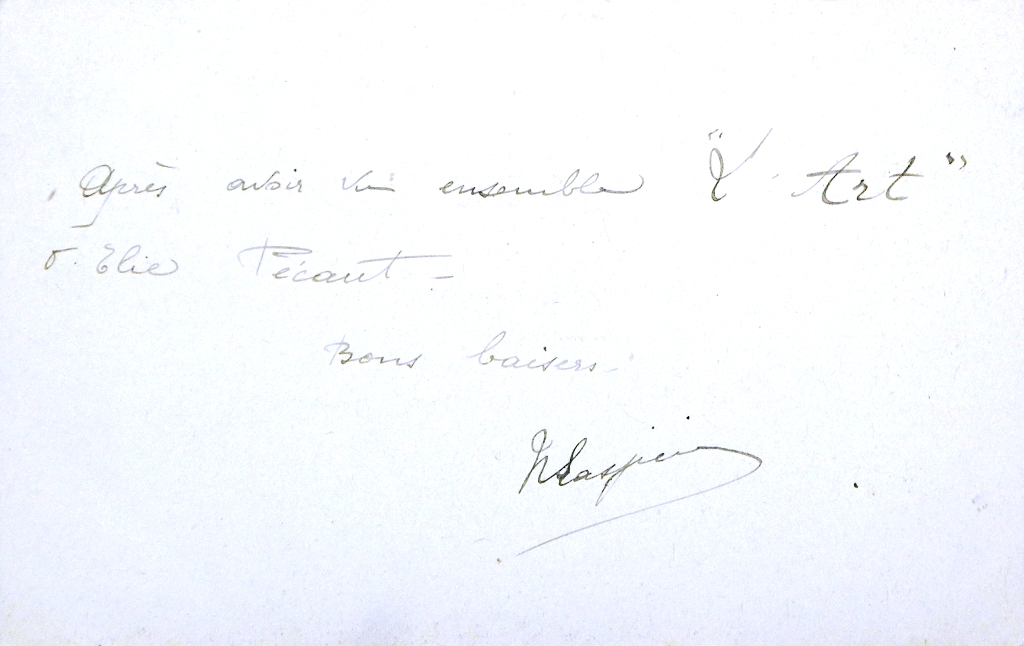 Après avoir vu ensemble "L'Art"
d'Elie Pécaut -
Bons baisers -